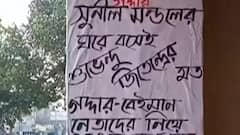 গদ্দার
সুনীল মন্ডলের
ঘরে বসেই
শুভেন্দু জিতেন্দ্রর মত
গদ্দার-বেইমান
নেতাদের নিয়ে